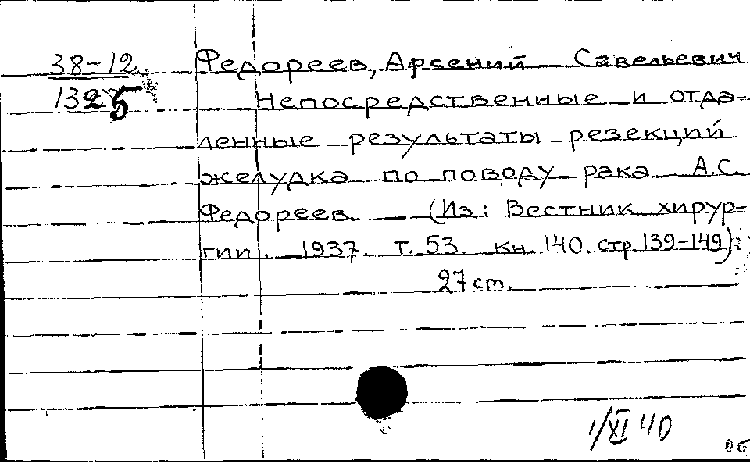 38-12 Федореев, Арсений Савельевич
1325 Непосредственные и отда-
ленные результаты резекций
желудка по поводу рака А.С.
Федореев. — (Из: Вестник хирур-
гии. 1937. т. 53. кн. 140. стр. 139-149).
27 cm.
1/XI 40